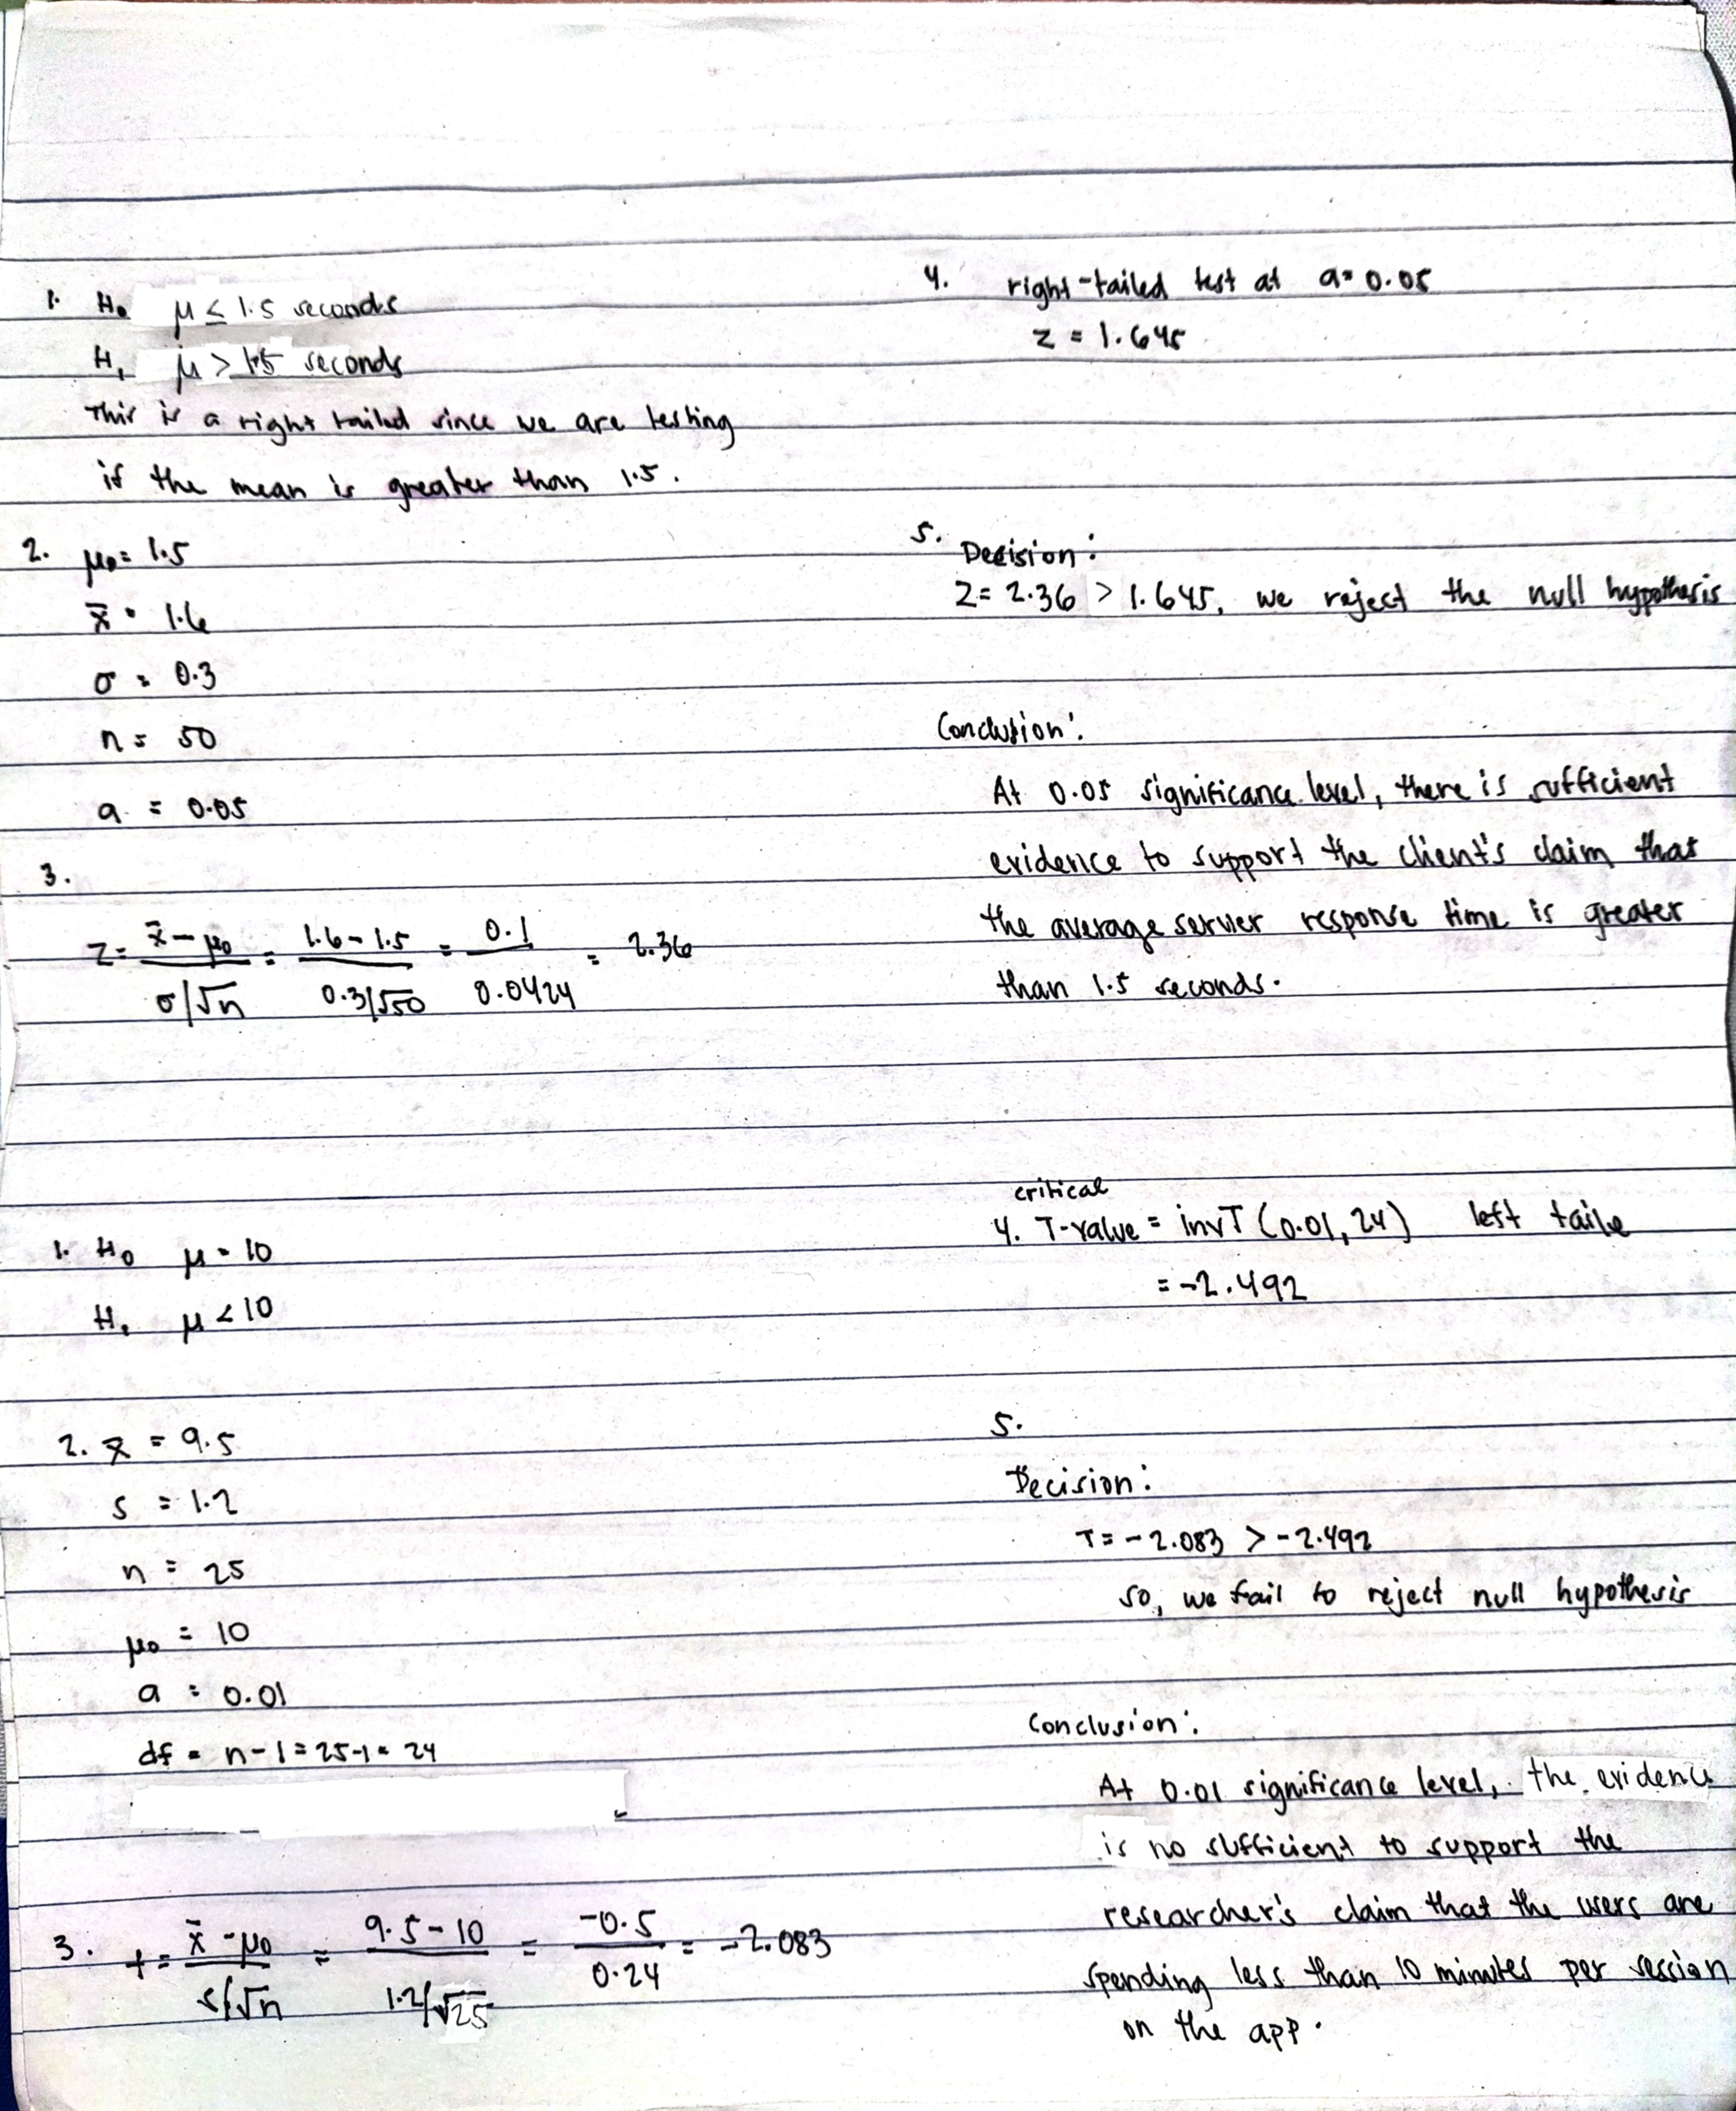 1. H₀ μ ≤ 1.5 seconds
H₁ μ > 1.5 seconds
This is a right tailed since we are testing
if the mean is greater than 1.5.
2. μ₀ = 1.5
x̄ = 1.6
σ = 0.3
n = 50
a = 0.05
3.
z = x̄ - μ₀ / σ/√n = 1.6 - 1.5 / 0.3/√50 = 0.1 / 0.0424 = 2.36
4. right-tailed test at a = 0.05
z = 1.645
5. Decision:
Z = 2.36 > 1.645, we reject the null hypothesis
Conclusion:
At 0.05 significance level, there is sufficient
evidence to support the client's claim that
the average server response time is greater
than 1.5 seconds.
1. H₀ μ = 10
H₁ μ < 10
2. x̄ = 9.5
s = 1.2
n = 25
μ₀ = 10
a = 0.01
df = n - 1 = 25-1 = 24
3. t = x̄ - μ₀ / s/√n = 9.5 - 10 / 1.2/√25 = -0.5 / 0.24 = -2.083
critical
4. T-value = invT (0.01, 24) left taile
= -2.492
5.
Decision:
T = -2.083 > -2.492
so, we fail to reject null hypothesis
Conclusion:
At 0.01 significance level, the evidence
is no sufficient to support the
researcher's claim that the users are
spending less than 10 minutes per session
on the app.